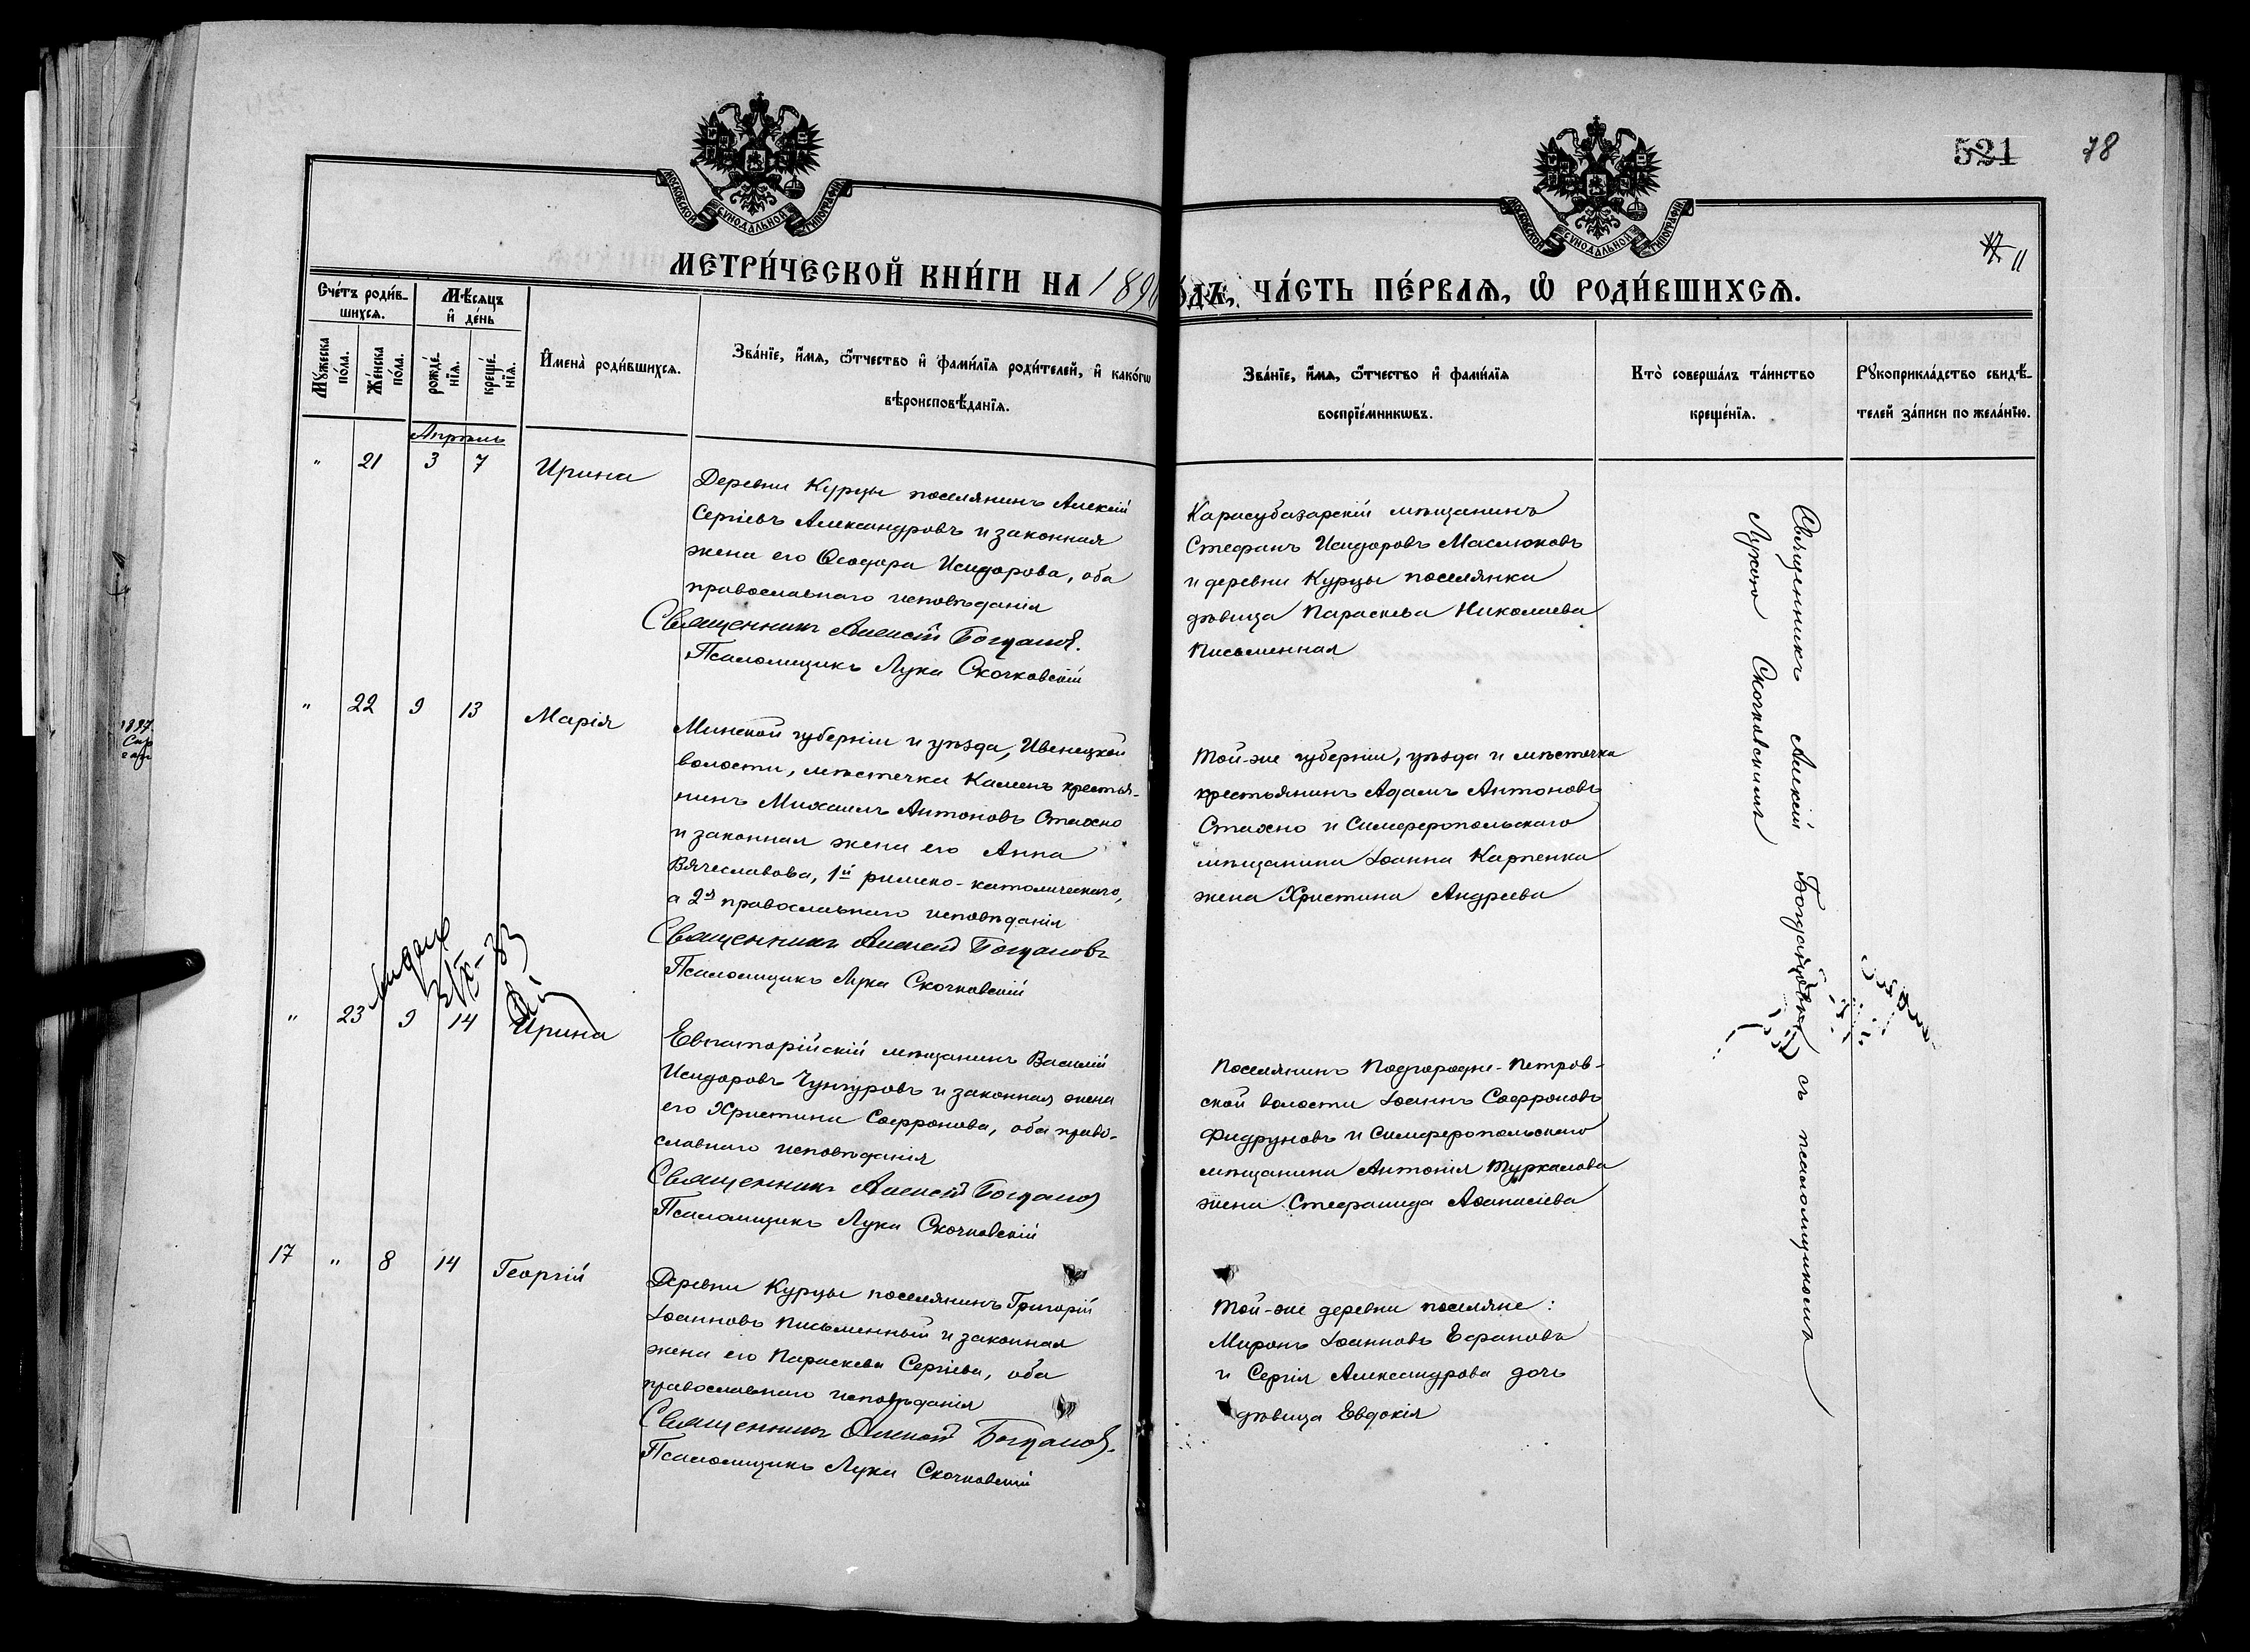 521
78
17 11
МОСКОВСКОЙ СУНОДАЛЬНОЙ ТИПОГРАФІИ
МОСКОВСКОЙ СУНОДАЛЬНОЙ ТИПОГРАФІИ
МЕТРИ́ЧЕСКОЙ КНИ́ГИ НА 189
ОДЪ, ЧА́СТЬ ПЕ́РВАЯ, Ѿ РОДИ́ВШИХСЯ.
Сче́тъ роди́в-
шихся.
Мѣ́сяцъ
и҆ де́нь
Мꙋ́жеска
по́ла.
Же́нска
по́ла.
рожде́-
нїя.
креще́-
нїя.
И҆мена̀ роди́вшихся.
Зва́нїе, и҆́мя, ѻ҆́тчество и҆ фами́лїя роди́телей, и҆ како́гѡ
вѣроисповѣ́данїя.
Зва́нїе, и҆́мя, ѻ҆́тчество и҆ фами́лїя
воспрїе́мникѡвъ.
Кто̀ соверша́лъ та́инство
креще́нїя.
Рꙋкоприкла́дство свидѣ́-
телей за́писи по жела́нїю.
Апрѣль
" 21 3 7 Ирина
Деревни Курцы поселянинъ Алексій
Сергіевъ Александровъ и законная
жена его Ѳеодора Исидорова, оба
православнаго исповѣданія
Священникъ Алексій Богдановъ.
Псаломщикъ Лука Скочковскій
Карасубазарскій мѣщанинъ
Стефанъ Исидоровъ Маслюковъ
и деревни Курцы поселянка
дѣвица Параскева Николаева
Письменная
Священникъ Алексій Богдановъ съ псаломщикомъ
Лукою Скочковскимъ
" 22 9 13 Марія
Минской губерніи и уѣзда, Ивенецкой
волости, мѣстечка Камень крестья-
нинъ Михаилъ Антоновъ Стахно
и законная жена его Анна
Вячеславова, 1й римско-католическаго,
а 2я православнаго исповѣданія
Священникъ Алексій Богдановъ
Псаломщикъ Лука Скочковскій
Той-же губерніи, уѣзда и мѣстечка
крестьянинъ Адамъ Антоновъ
Стахно и Симферопольскаго
мѣщанина Іоанна Карпенка
жена Христина Андреева
" 23 9 14 Ирина
Евпаторійскій мѣщанинъ Василій
Исидоровъ Чунгуровъ и законная жена
его Христина Софронова, оба право-
славнаго исповѣданія
Священникъ Алексій Богдановъ
Псаломщикъ Лука Скочковскій
Поселянинъ Подгородне-Петров-
ской волости Іоаннъ Софроновъ
Фидруновъ и Симферопольскаго
мѣщанина Антонія Туркалова
жена Стефанида Аѳанасіева
17 " 8 14 Георгій
Деревни Курцы поселянинъ Григорій
Іоанновъ Письменный и законная
жена его Параскева Сергіева, оба
православнаго исповѣданія
Священникъ Алексій Богдановъ.
Псаломщикъ Лука Скочковскій
Той-же деревни поселяне:
Миронъ Іоанновъ Ефрановъ
и Сергія Александрова дочь
дѣвица Евдокія
1897